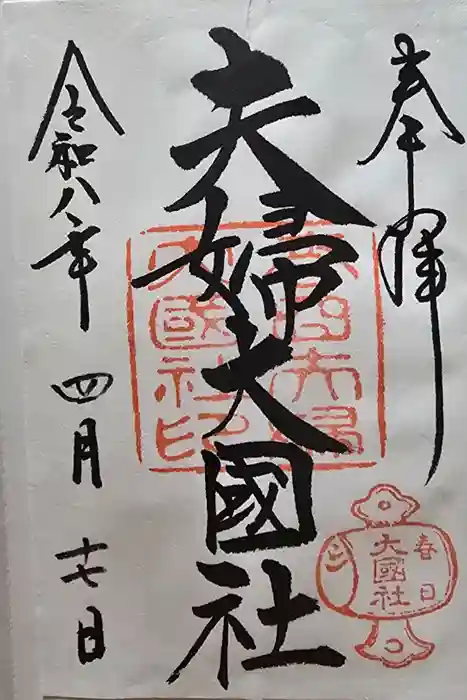 奉拝
夫婦大國社
令和八年
四月
十七日
春日夫婦
大國社印
春日
大國社